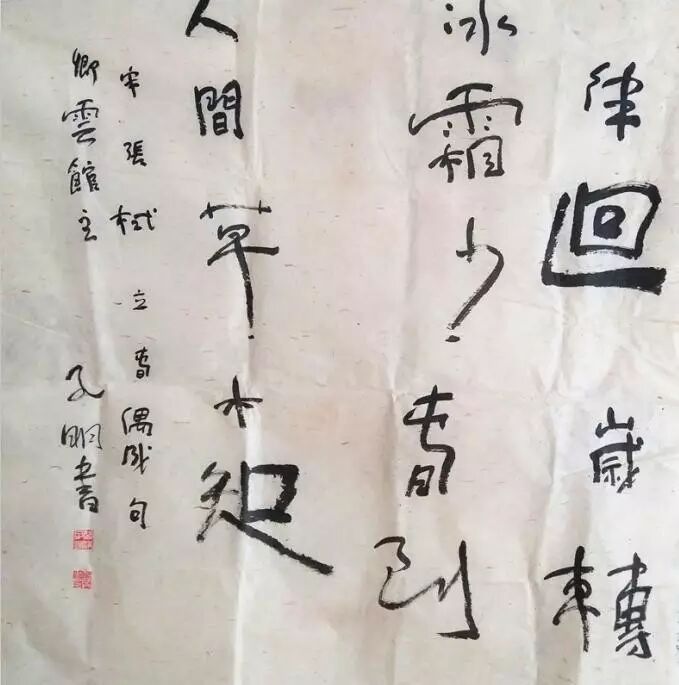 律迴歲轉
冰霜少春到
人間草木知
宋張栻 立春偶成句
卿雲館主 孔明書